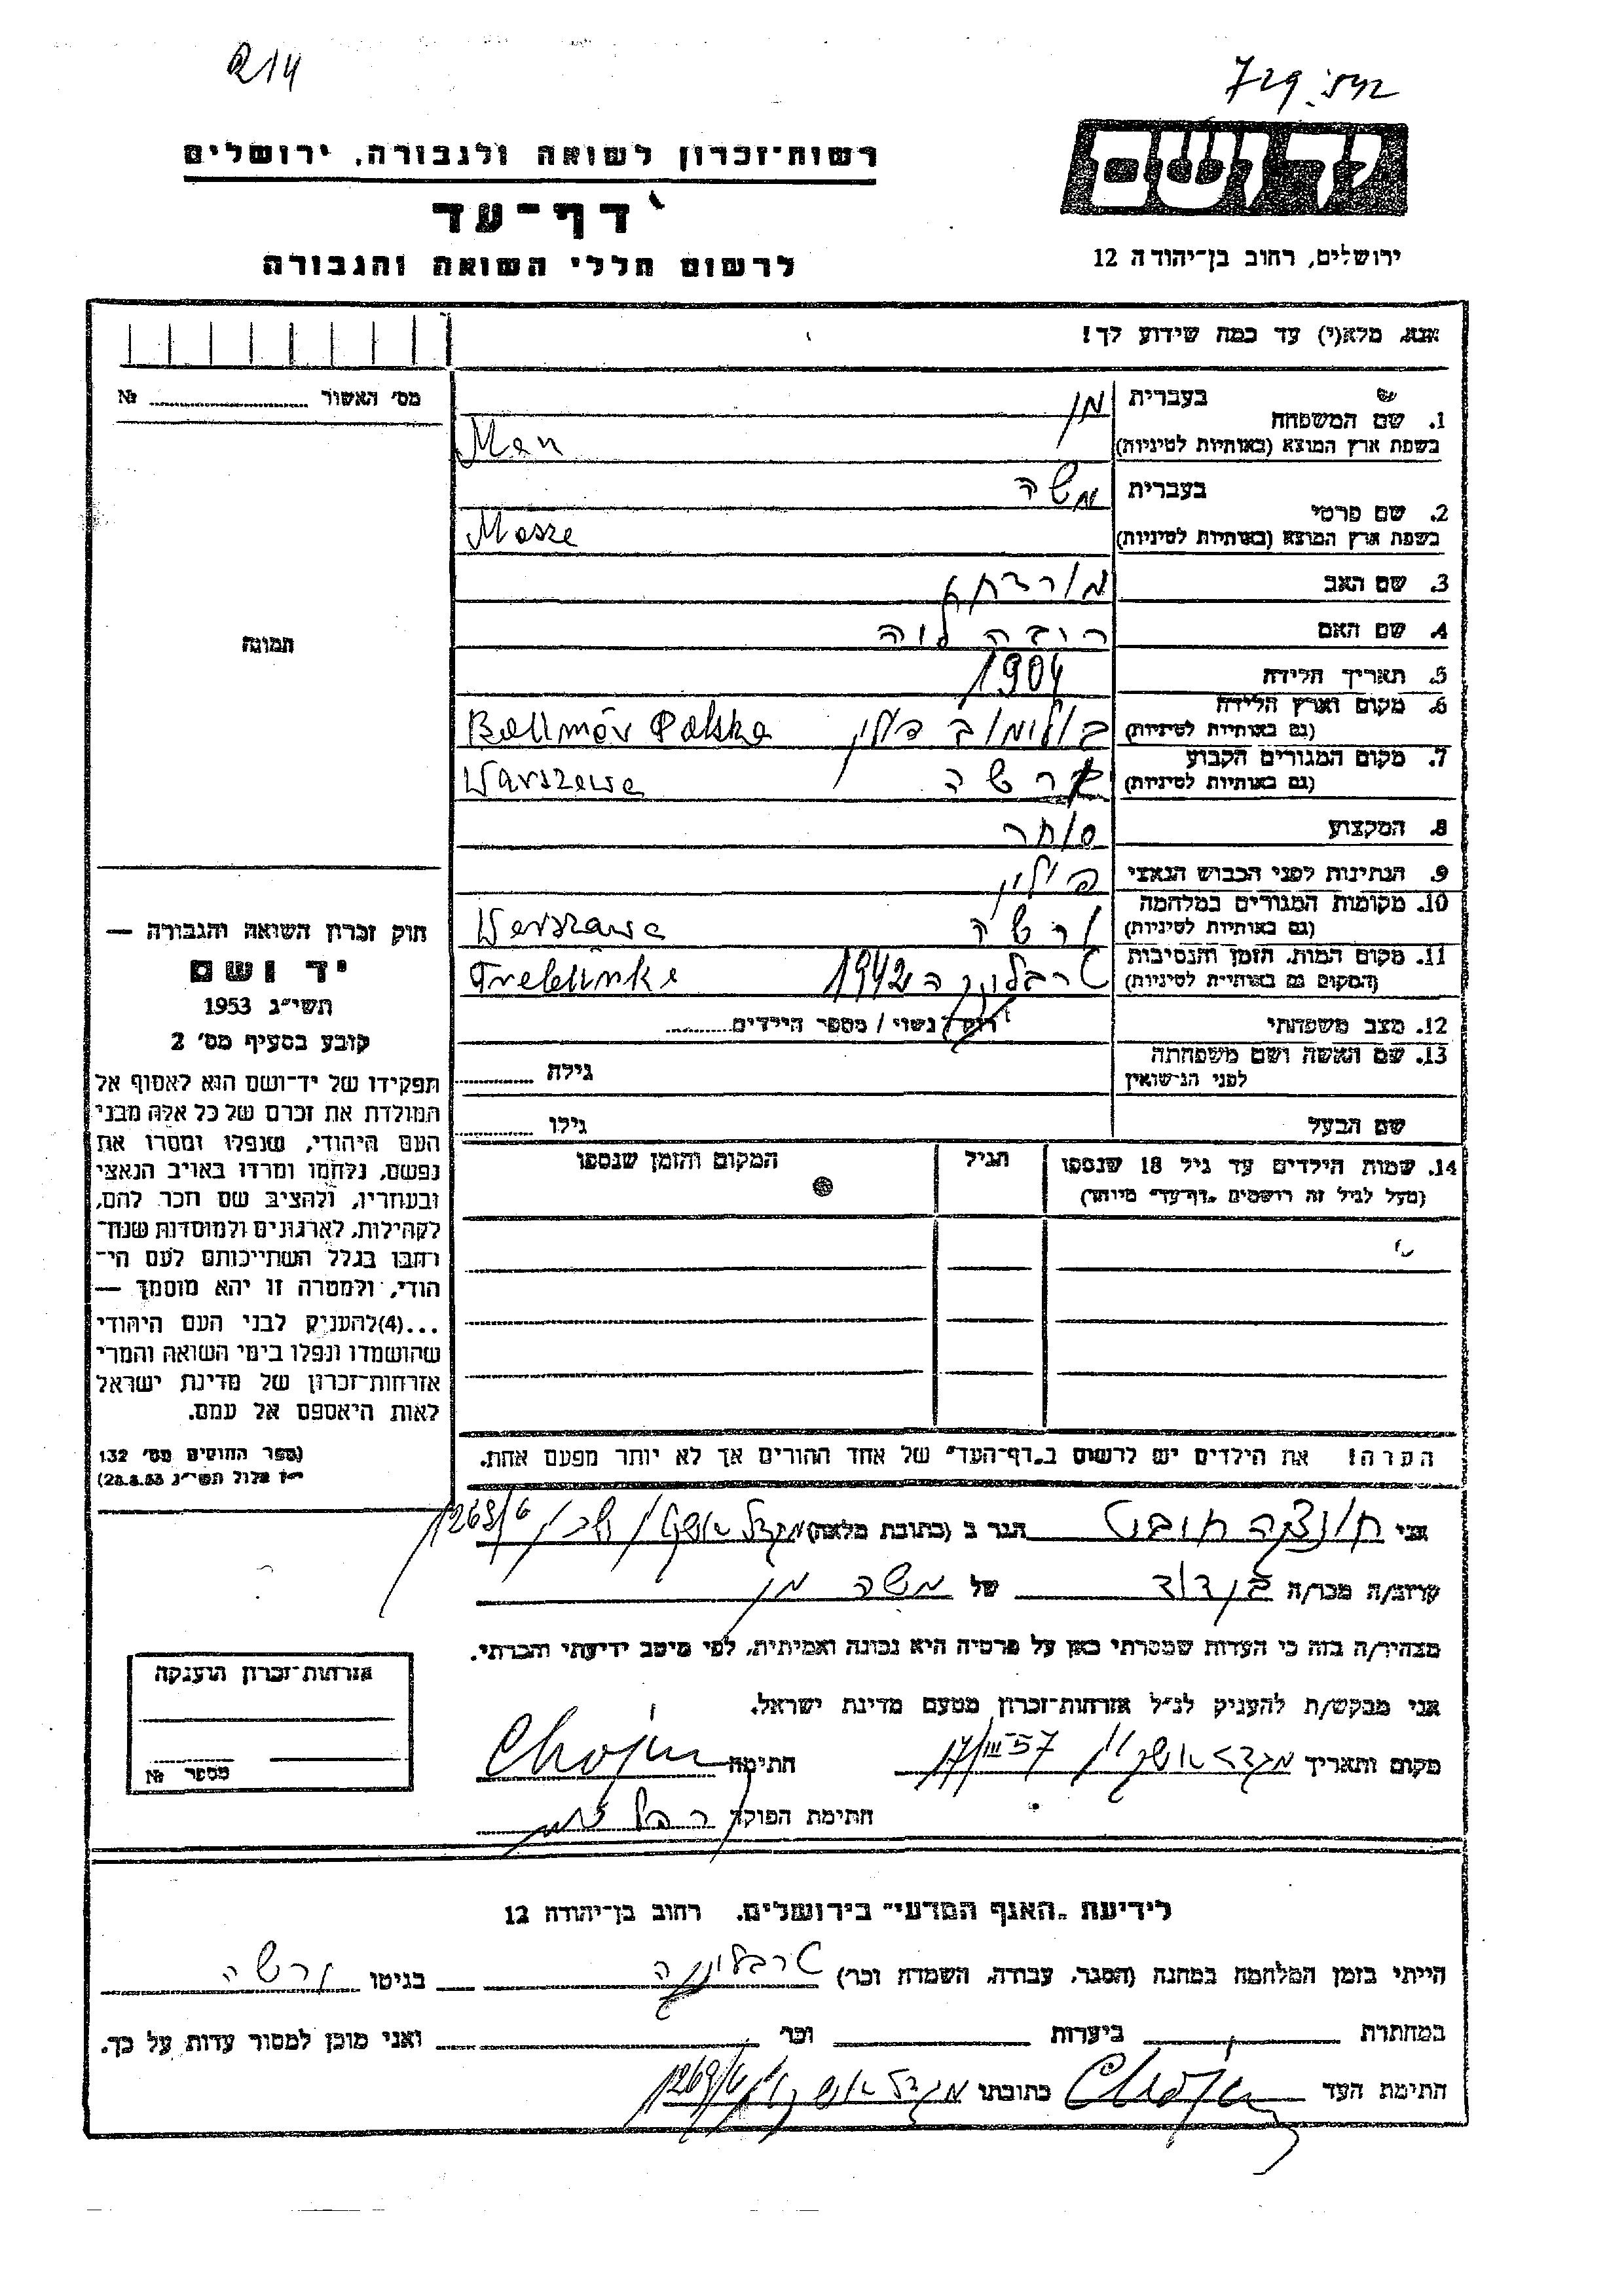 R14
רשות־זכרון לשואה ולגבורה, ירושלים
דף־עד
לרשום חללי השואה והגבורה
ירושלים, רחוב בן־יהודה 12
אנא, מלא(י) עד כמה שידוע לך!
מס׳ האשור № 
1. שם המשפחה בעברית מן
בשפת ארץ המוצא (באותיות לטיניות) Man
2. שם פרטי בעברית משה
בשפת ארץ המוצא (באותיות לטיניות) Mosze
3. שם האב
4. שם האם
5. תאריך הלידה 1904
6. מקום וארץ הלידה
(גם באותיות לטיניות) בולימוב פולין Bolimów Polska
7. מקום המגורים הקבוע
(גם באותיות לטיניות) ורשה Warszawa
8. המקצוע סוחר
9. הנתינות לפני הכבוש הנאצי פולין
10. מקומות המגורים במלחמה
(גם באותיות לטיניות) ורשה Warszawa
11. מקום המות, הזמן והנסיבות
(המקום גם באותיות לטיניות) טרבלינקה 1942 Treblinka
12. מצב משפחתי רוק / נשוי / מספר הילדים
13. שם האשה ושם משפחתה
לפני הנשואין גילה
שם הבעל גילו
14. שמות הילדים עד גיל 18 שנספו
(מעל לגיל זה רושמים „דף־עד״ מיוחד)
הגיל
המקום והזמן שנספו
הערה! את הילדים יש לרשום ב„דף־העד״ של אחד ההורים אך לא יותר מפעם אחת.
תמונה
חוק זכרון השואה והגבורה —
יד ושם
תשי״ג 1953
קובע בסעיף מס׳ 2
תפקידו של יד־ושם הוא לאסוף אל
המולדת את זכרם של כל אלה מבני
העם היהודי, שנפלו ומסרו את
נפשם, נלחמו ומרדו באויב הנאצי
ובעוזריו, ולהציב שם וזכר להם,
לקהילות, לארגונים ולמוסדות שנח־
רבו בגלל השתייכותם לעם הי־
הודי, ולמטרה זו יהא מוסמך —
...(4)להעניק לבני העם היהודי
שהושמדו ונפלו בימי השואה והמרי
אזרחות־זכרון של מדינת ישראל
לאות היאספם אל עמם.
(ספר החוקים מס׳ 132
י״ז אלול תשי״ג 28.8.53)
אני הגר ב (כתובת מלאה) מגדל אשקלון 1268/6
קרוב/ה מכר/ה בן דוד של משה מן
מצהיר/ה בזה כי העדות שמסרתי כאן על פרטיה היא נכונה ואמיתית, לפי מיטב ידיעתי והכרתי.
אני מבקש/ת להעניק לנ״ל אזרחות־זכרון מטעם מדינת ישראל.
מקום ותאריך מגדל אשקלון 17/III 57 חתימה
חתימת הפוקד
אזרחות־זכרון הוענקה
מספר №
לידיעת „האגף המדעי״ בירושלים, רחוב בן־יהודה 12
הייתי בזמן המלחמה במחנה (הסגר, עבודה, השמדה וכו׳) טרבלינקה בגיטו ורשה
במחתרת ביערות וכו׳ ואני מוכן למסור עדות על כך.
חתימת העד כתובתו מגדל אשקלון